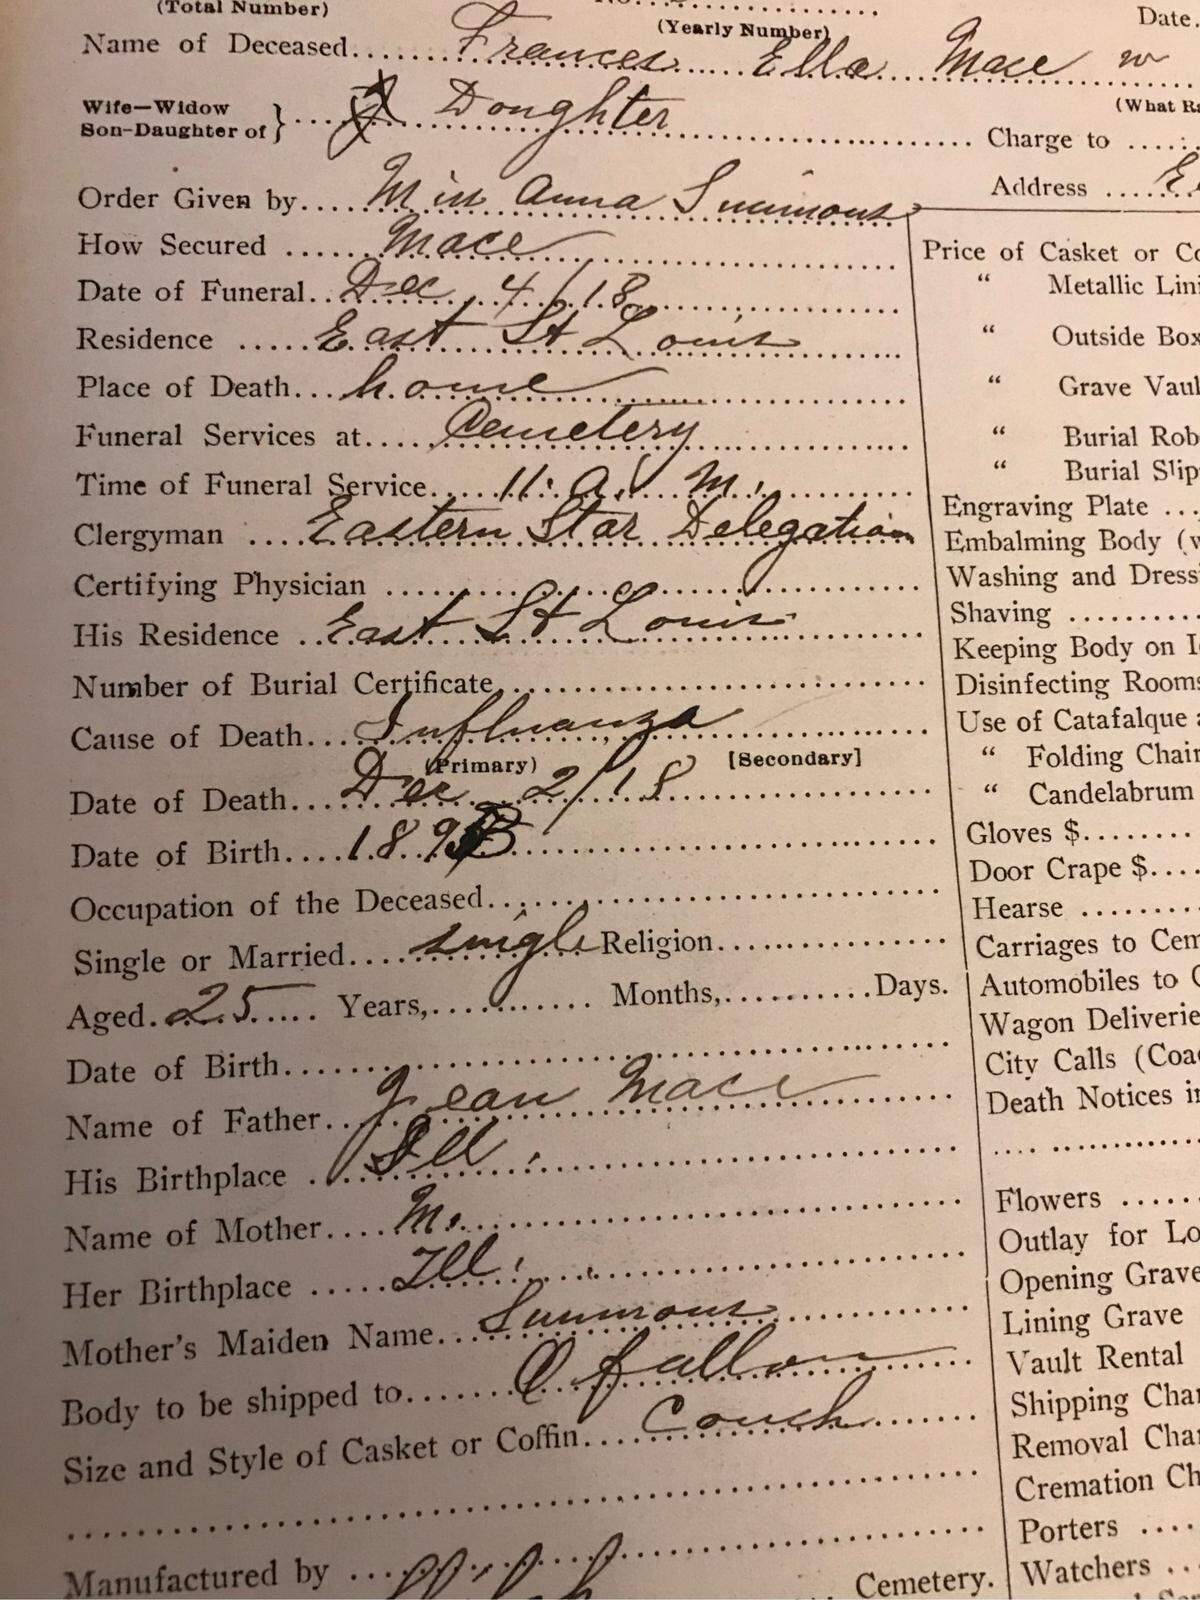 (Total Number)
(Yearly Number)
Date.
Name of Deceased.... Frances Ella Mace w
Wife—Widow
Son-Daughter of } Doughter
(What Ra
Charge to ....
Order Given by.... Miss Anna Simmons
Address ....
How Secured ...... Mace
Date of Funeral.. Dec 4/18
Residence ..... East St Louis
Place of Death... home
Funeral Services at..... Cemetery
Time of Funeral Service.... 11. a. m.
Clergyman .... Eastern Star Delegation
Certifying Physician ......
His Residence .. East St Louis
Number of Burial Certificate......
Cause of Death... Influanza
(Primary) [Secondary]
Date of Death.... Dec 2/18
Date of Birth.... 1893
Occupation of the Deceased......
Single or Married.... single Religion......
Aged. 25 .... Years,.......... Months,..........Days.
Date of Birth......
Name of Father.. Jean Mace
His Birthplace .. Ill.
Name of Mother.... M.
Her Birthplace ..... Ill.
Mother's Maiden Name... Simmons
Body to be shipped to...... O'fallon
Size and Style of Casket or Coffin.... Couch
Manufactured by ...
Cemetery.
Price of Casket or Co
“ Metallic Lini
“ Outside Box
“ Grave Vaul
“ Burial Rob
“ Burial Slip
Engraving Plate ...
Embalming Body (w
Washing and Dressi
Shaving ..........
Keeping Body on I
Disinfecting Rooms
Use of Catafalque a
“ Folding Chair
“ Candelabrum
Gloves $........
Door Crape $....
Hearse ........
Carriages to Cem
Automobiles to C
Wagon Deliverie
City Calls (Coa
Death Notices in
Flowers ......
Outlay for Lo
Opening Grave
Lining Grave
Vault Rental
Shipping Char
Removal Char
Cremation Ch
Porters ....
Watchers ...